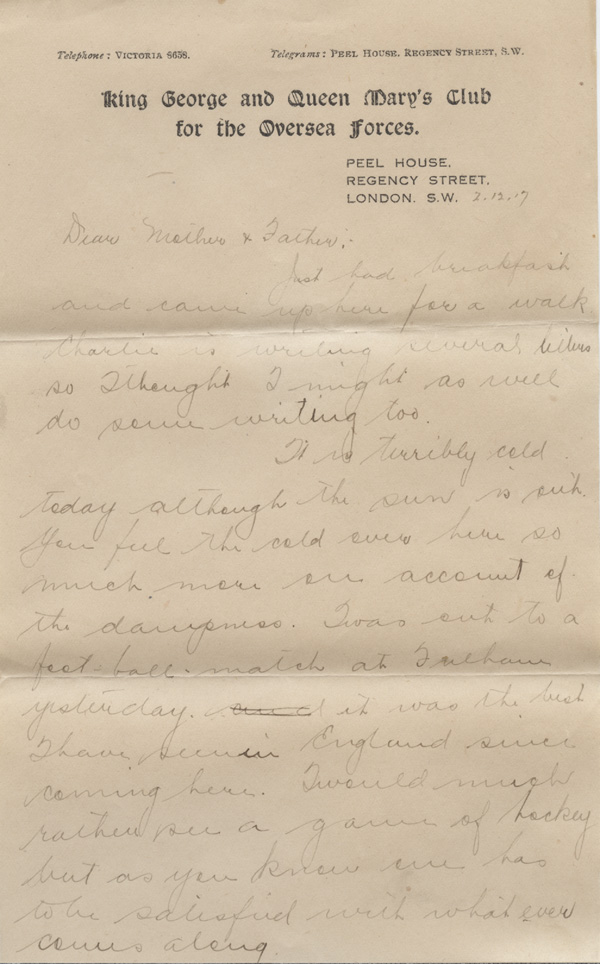 Telephone: VICTORIA 8658. Telegrams: PEEL HOUSE. REGENCY STREET, S.W.
King George and Queen Mary's Club
for the Oversea Forces.
PEEL HOUSE,
REGENCY STREET,
LONDON. S.W. 2.12.17
Dear Mother & Father:-
Just had breakfast
and came up here for a walk
Charlie is writing several letters
so I thought I might as well
do some writing too.
It is terribly cold
today although the sun is out.
You feel the cold over here so
much more on account of
the dampness. I was out to a
foot-ball match at Fulham
yesterday. and it was the best
I have seen in England since
coming here. I would much
rather see a game of hockey
but as you know one has
to be satisfied with what ever
comes along.